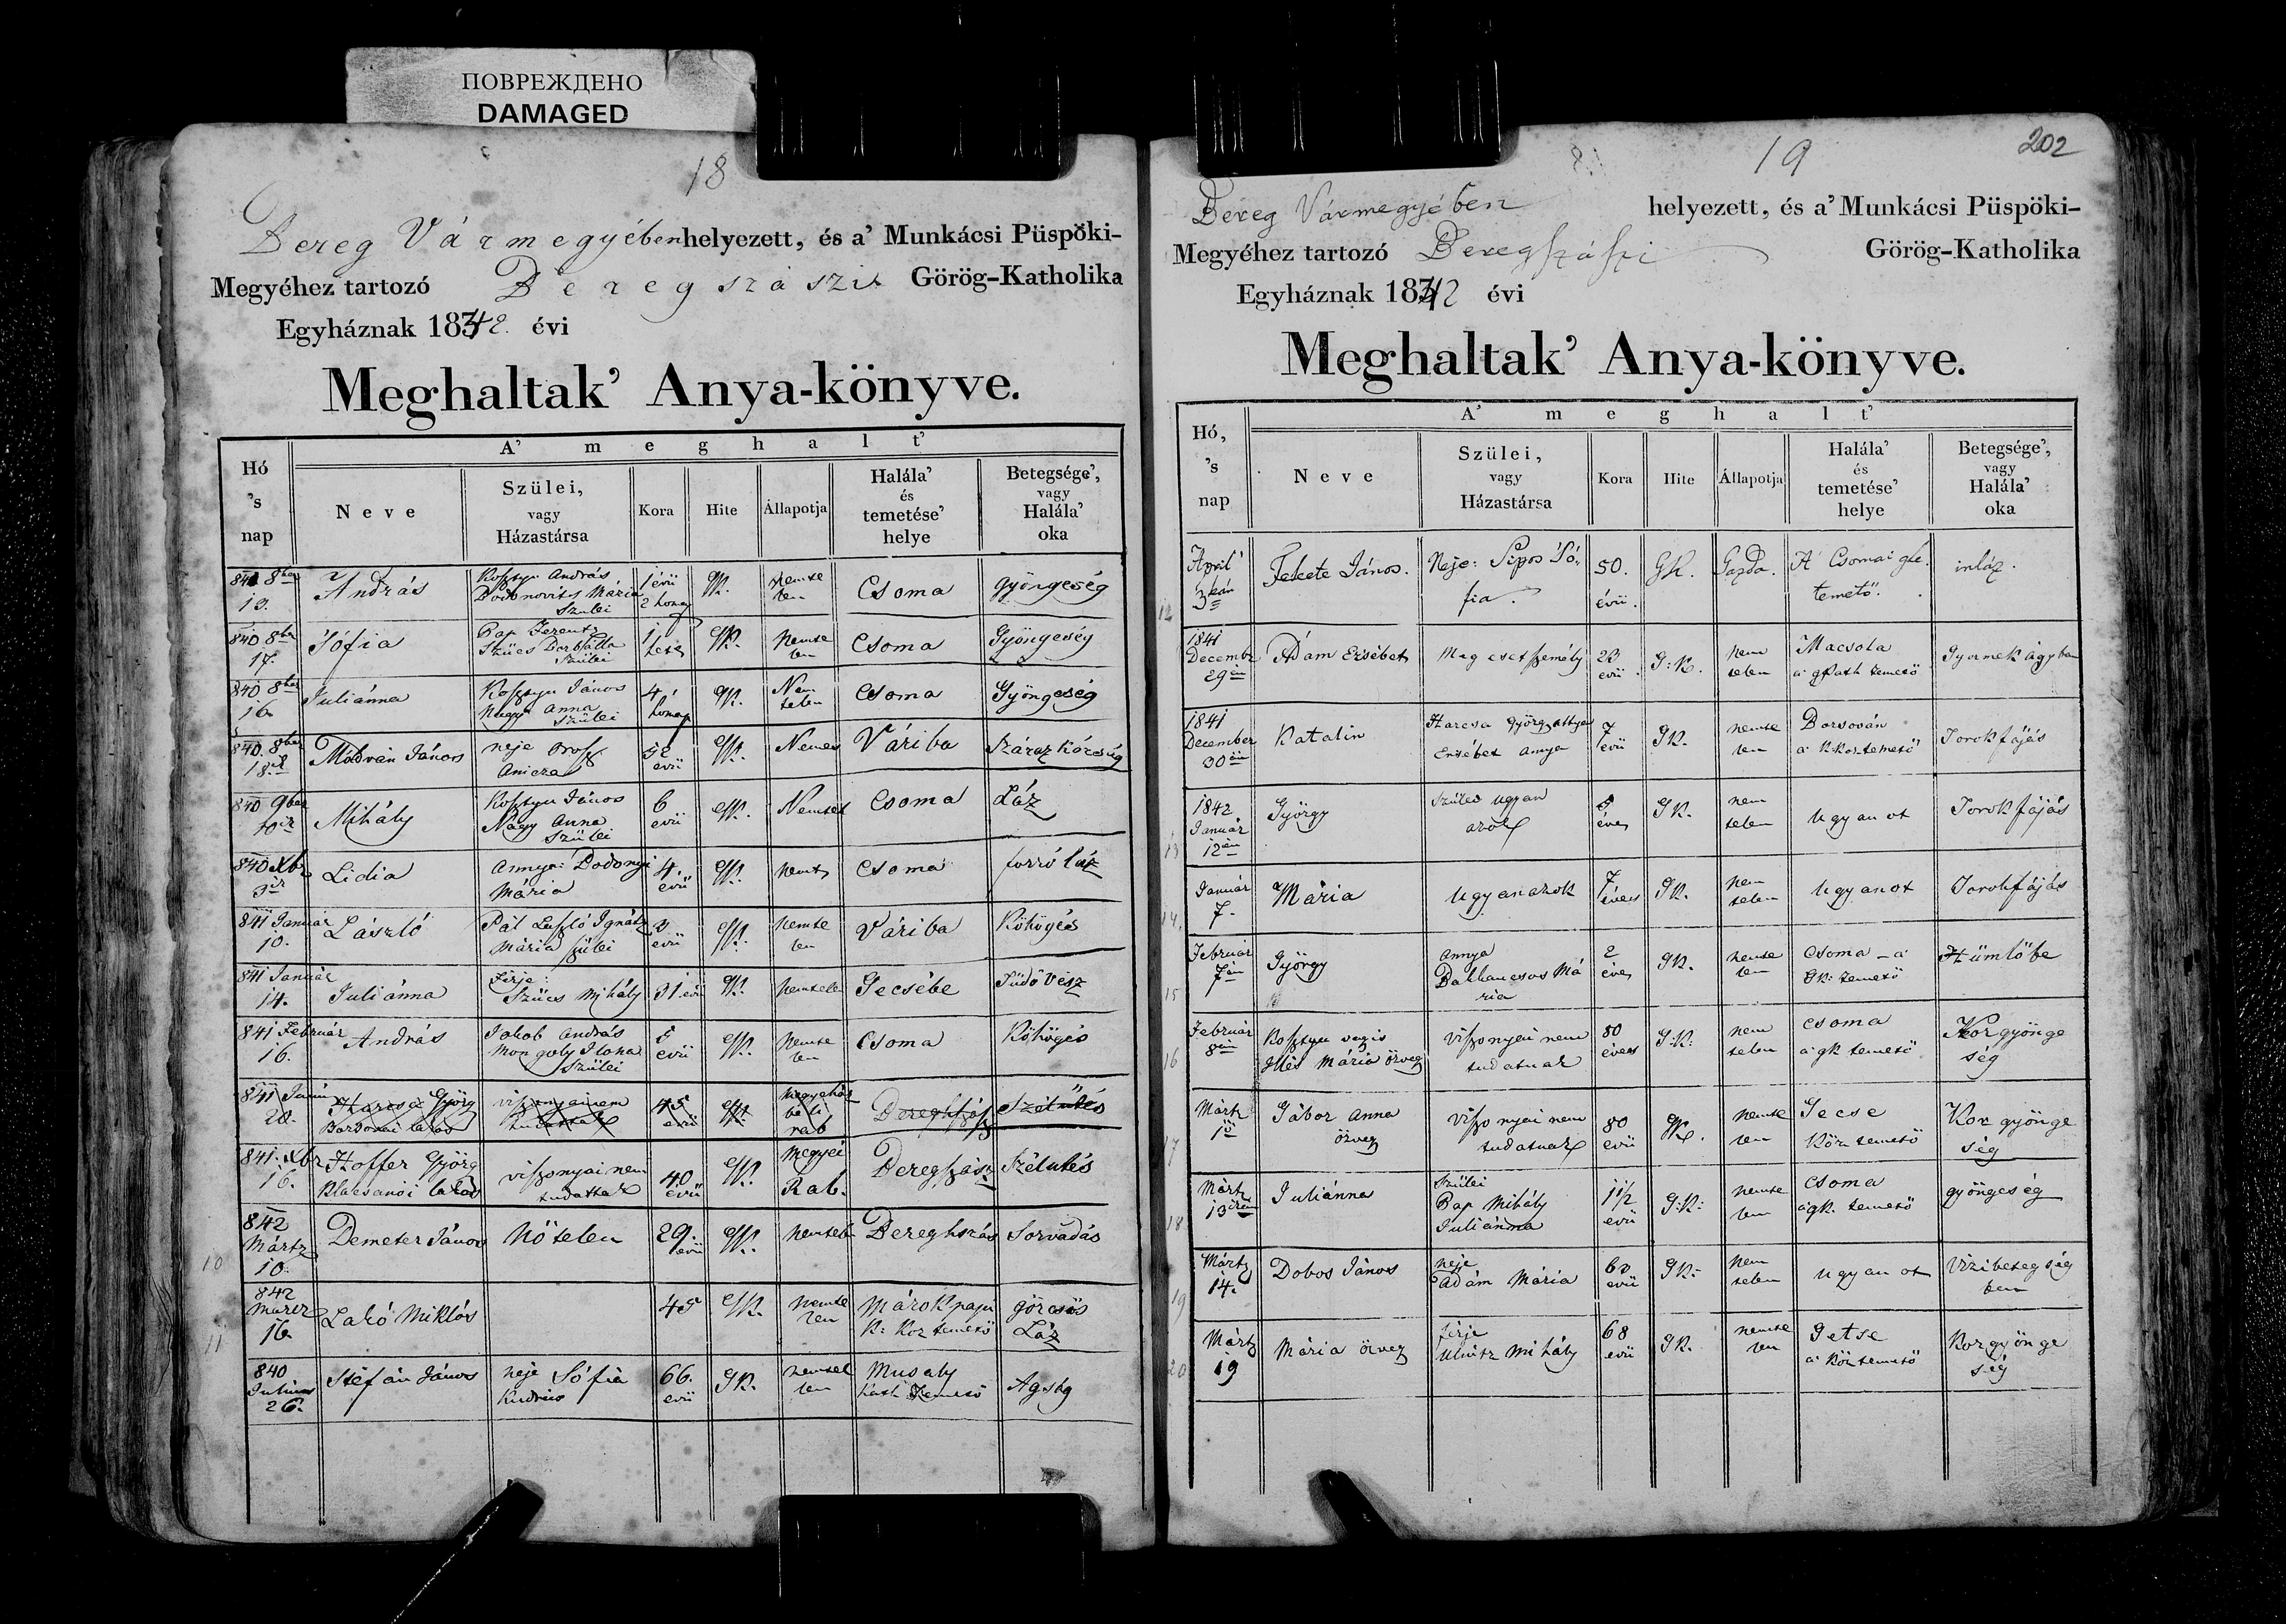 ПОВРЕЖДЕНО
DAMAGED
18
Bereg Vármegyében helyezett, és a' Munkácsi Püspöki-
Megyéhez tartozó Beregszászi Görög-Katholika
Egyháznak 1842. évi
Meghaltak' Anya-könyve.
Hó 's nap
A' meghalt'
Neve
Szülei, vagy Házastársa
Kora
Hite
Állapotja
Halála' és temetése' helye
Betegsége', vagy Halála' oka
840 8ber 13. András Kosztyu András Mária Szülei 1 évü 2 honap GK. Nemte len Csoma gyöngeség
840 8ber 17. Sófia Pap Ferentz Szücs Borbálla Szülei 1 hetes GK. Nemte len Csoma Gyöngeség
840 8ber 16. Juliánna Kosztyu János Nagy Anna Szülei 4 honap GK. Nem telen Csoma Gyöngeség
840. 8ber 18. János neje Orosz Anicza 52 evü GK. Nemes Váriba Száraz
840 9ber Mihály Kosztyu János Nagy Anna Szülei 6 evü GK. Nemtel Csoma Láz
840 Xbr Lidia Annya: Dodonyi Mária 4. evü GK. Nemt Csoma forró láz
841 Január 10. László Pál László Ignátz Mária szülei evü GK. Nemte len Váriba Köhögés
841 Január 14. Juliánna Férje: Szücs Mihály 31 evü GK. Nemtele Gecsébe Tüdő Vész
841 Február 16. András Jakob András Mongoly Ilona Szülei 5 evü GK. Nemte len Csoma Köhögés
841 20. Harcsa Györg lakos viszonyainem tudattak 45 evü GK. megyeház béli rab Beregszász Szélütés
841. Xbr 16. Hoffer Györg lakos viszonyai nem tudattak 40 evü GK. Megyei Rab. Beregszász Szélütés
10 842 Mártz 10. Demeter János Nőtelen 29. evü GK. Nemtele Beregszász Sorvadás
11 842 Martz 16. Lakó Miklós 45 GK. Nemte len Márok papi K: Köz temető görcsös Láz
840 Julius 26. Stéfán János neje Sófia 66. evü GK. nemtel len Musaly Kath Temető Agság
19
202
Bereg Vármegyében helyezett, és a' Munkácsi Püspöki-
Megyéhez tartozó Beregszászi Görög-Katholika
Egyháznak 1842 évi
Meghaltak' Anya-könyve.
Hó, 's nap
A' meghalt'
Neve
Szülei, vagy Házastársa
Kora
Hite
Állapotja
Halála' és temetése' helye
Betegsége', vagy Halála' oka
12 April 3kán Fekete János. Neje: Sipos Só,, fia. 50. évü. GK. Gazda. A' Csomai gk. temető. inláz.
1841 Decemb 29én Ádám Ersébet Meg eset személy 23 evü G:K. nem telen Macsola a' gKath temető Gyermek ágyban
1841 December 30án Katalin Harcsa György attya Ersébet Annya 7 evü GK. nemte len Borsován a' K Köz temető Torokfájás
13 1842 Január 12én György Szülei ugyan azok 5 éves GK. nem telen ugyan ot Torokfájás
14. Január 7. Mária ugyanazok 7 éves GK. nem telen ugyanot Torokfájás
15 Február 7én György Annya Má ria 2 éves GK. nemte len Csoma - a' GK: temető Himlőbe
16 Február 8án Kosztyu vagyis Illés Mária özvegy viszonyai nem tudatnak 80 éves G:K: nem telen Csoma a' gk temető Kor gyönge ség
17 Mártz 1ő Gábor Anna özvegy viszonyai nem tudatnak 80 evü GK. nemte len Gecse Köz temető Kor gyönge ség
18 Mártz 13 Juliánna Szülei Pap Mihály Juliánna 1 1/2 evü G:K: nemte len Csoma a' gk. temető gyöngeség
19 Mártz 14. Dobos János neje Ádám Mária 60 evü GK. nem telen ugyan ot Vizibetegség ben
20 Mártz 19 Mária özvegy férje Mihály 68 evü GK. nemte len Getse a' Köz temető Korgyönge ség